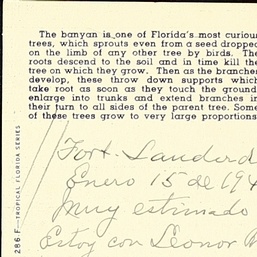 The banyan is one of Florida's most curiou
trees, which sprouts even from a seed dropped
on the limb of any other tree by birds. The
roots descend to the soil and in time kill the
tree on which they grow. Then as the branches
develop, these throw down supports which
take root as soon as they touch the ground
enlarge into trunks and extend branches in
their turn to all sides of the parent tree. Some
of these trees grow to very large proportions
Fort. Lauderd
Enero 15 de 194
Muy estimado
Estoy con Leonor
286 F—TROPICAL FLORIDA SERIES